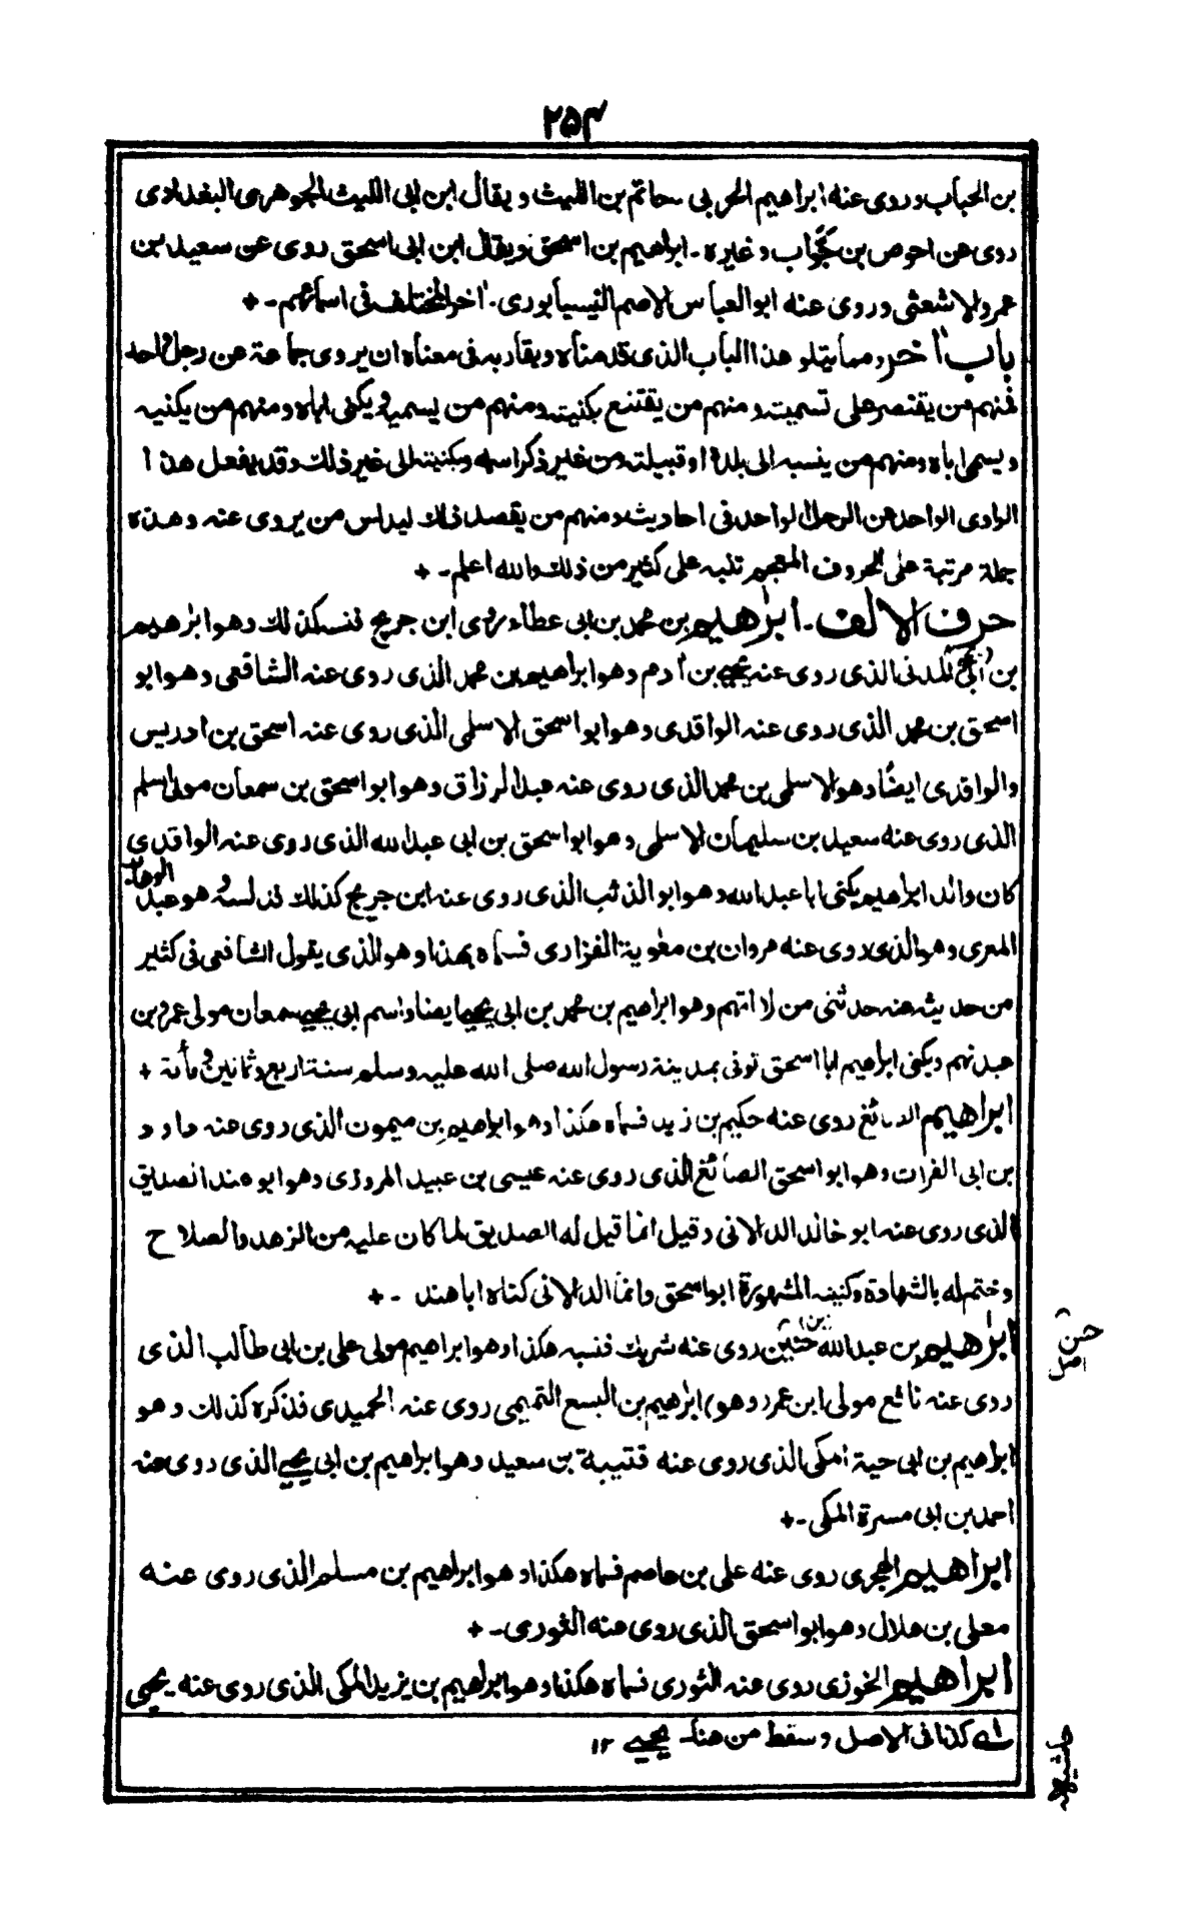 ٢٥٤
بن الحباب وروى عنه ابراهيم الحربى حاتم بن الليث ويقال ابن ابى الليث الجوهرى البغدادى
روى عن احوص بن جواب وغيره ـ ابراهيم بن اسحق ويقال ابن ابى اسحق روى عن سعيد بن
عمرو الاشعثى وروى عنه ابو العباس الاصم النيسابورى ـ اخر المختلف فى اسمائهم ـ +
باب اخر ومما يتلو هذا الباب الذى قدمناه ويقاربه فى معناه ان يروى جماعة عن رجل واحد
فمنهم من يقتصر على تسميته ومنهم من يقتنع بكنيته ومنهم من يسميه ويكنى اباه ومنهم من يكنيه
ويسمى اباه ومنهم من ينسبه الى بلده او قبيلته من غير ذكر اسمه وكنيته الى غير ذلك وقد يفعل هذا
الراوى الواحد عن الرجل الواحد فى احاديث ومنهم من يقصد ذلك ليدلس من يروى عنه وهذه
جملة مرتبة على الحروف المعجم تنبه على كثير من ذلك والله اعلم ـ +
حرف الالف ـ ابرٰهيم بن محمد بن ابى عطاء روى ابن جريج فنسبه كذلك وهو ابرٰهيم
بن ابى المدنى الذى روى عنه يحيى بن ادم وهو ابراهيم بن محمد الذى روى عنه الشافعى وهو ابو
اسحق بن محمد الذى روى عنه الواقدى وهو ابو اسحق الاسلمى الذى روى عنه اسحق بن ادريس
والواقدى ايضًا وهو الاسلمى بن محمد الذى روى عنه عبد الرزاق وهو ابو اسحق بن سمعان مولى اسلم
الذى روى عنه سعيد بن سليمان الاسلمى وهو ابو اسحق بن ابى عبد الله الذى روى عنه الواقدى
كان والد ابراهيم يكنى ابا عبد الله وهو ابو الذئب الذى روى عنه ابن جريج كذلك فدلسه وهو عبد الوهاب
المعرى وهو الذى روى عنه مروان بن معٰوية الفزارى فسماه بهذا وهو الذى يقول الشافعى فى كثير
من حديثه عنه حدثنى من لا اتهم وهو ابراهيم بن محمد بن ابى يحيى ايضا واسم ابى يحيى سمعان مولى عمرو بن
عبد نهم ويكنى ابراهيم ابا اسحق توفى بمدينة رسول الله صلى الله عليه وسلم سنة اربع وثمانين ومأئة +
ابراهيم الصائغ روى عنه حكيم بن زيد فسماه هكذا وهو ابراهيم بن ميمون الذى روى عنه داود
بن ابى الفرات وهو ابو اسحق الصائغ الذى روى عنه عيسى بن عبيد المروزى وهو ابو هند الصديق
الذى روى عنه ابو خالد الدالانى وقيل انما قيل له الصديق لما كان عليه من الزهد والصلاح
وختم له بالشهادة وكنيته المشهورة ابو اسحق وانما الدالانى كناه ابا هند ـ +
ابرٰهيم بن عبد الله بن حنين روى عنه شريك فنسبه هكذا وهو ابراهيم مولى على بن ابى طالب الذى
روى عنه نافع مولى ابن عمر (وهو) ابرٰهيم بن اليسع التميمى روى عنه الحميدى فذكره كذلك وهو
ابراهيم بن ابى حية المكى الذى روى عنه قتيبة بن سعيد وهو ابراهيم بن ابى يحيى الذى روى عنه
احمد بن ابى مسرة المكى ـ +
ابراهيم الهجرى روى عنه على بن عاصم فسماه هكذا وهو ابراهيم بن مسلم الذى روى عنه
معلى بن هلال وهو ابو اسحق الذى روى عنه الثورى ـ +
ابراهيم الخوزى روى عنه الثورى فسماه هكذا وهو ابراهيم بن يزيد المكى الذى روى عنه يحيى
كذا فى الاصل وسقط من هنا ـ يحيى ١٢
حسن
اصل
حاشيه